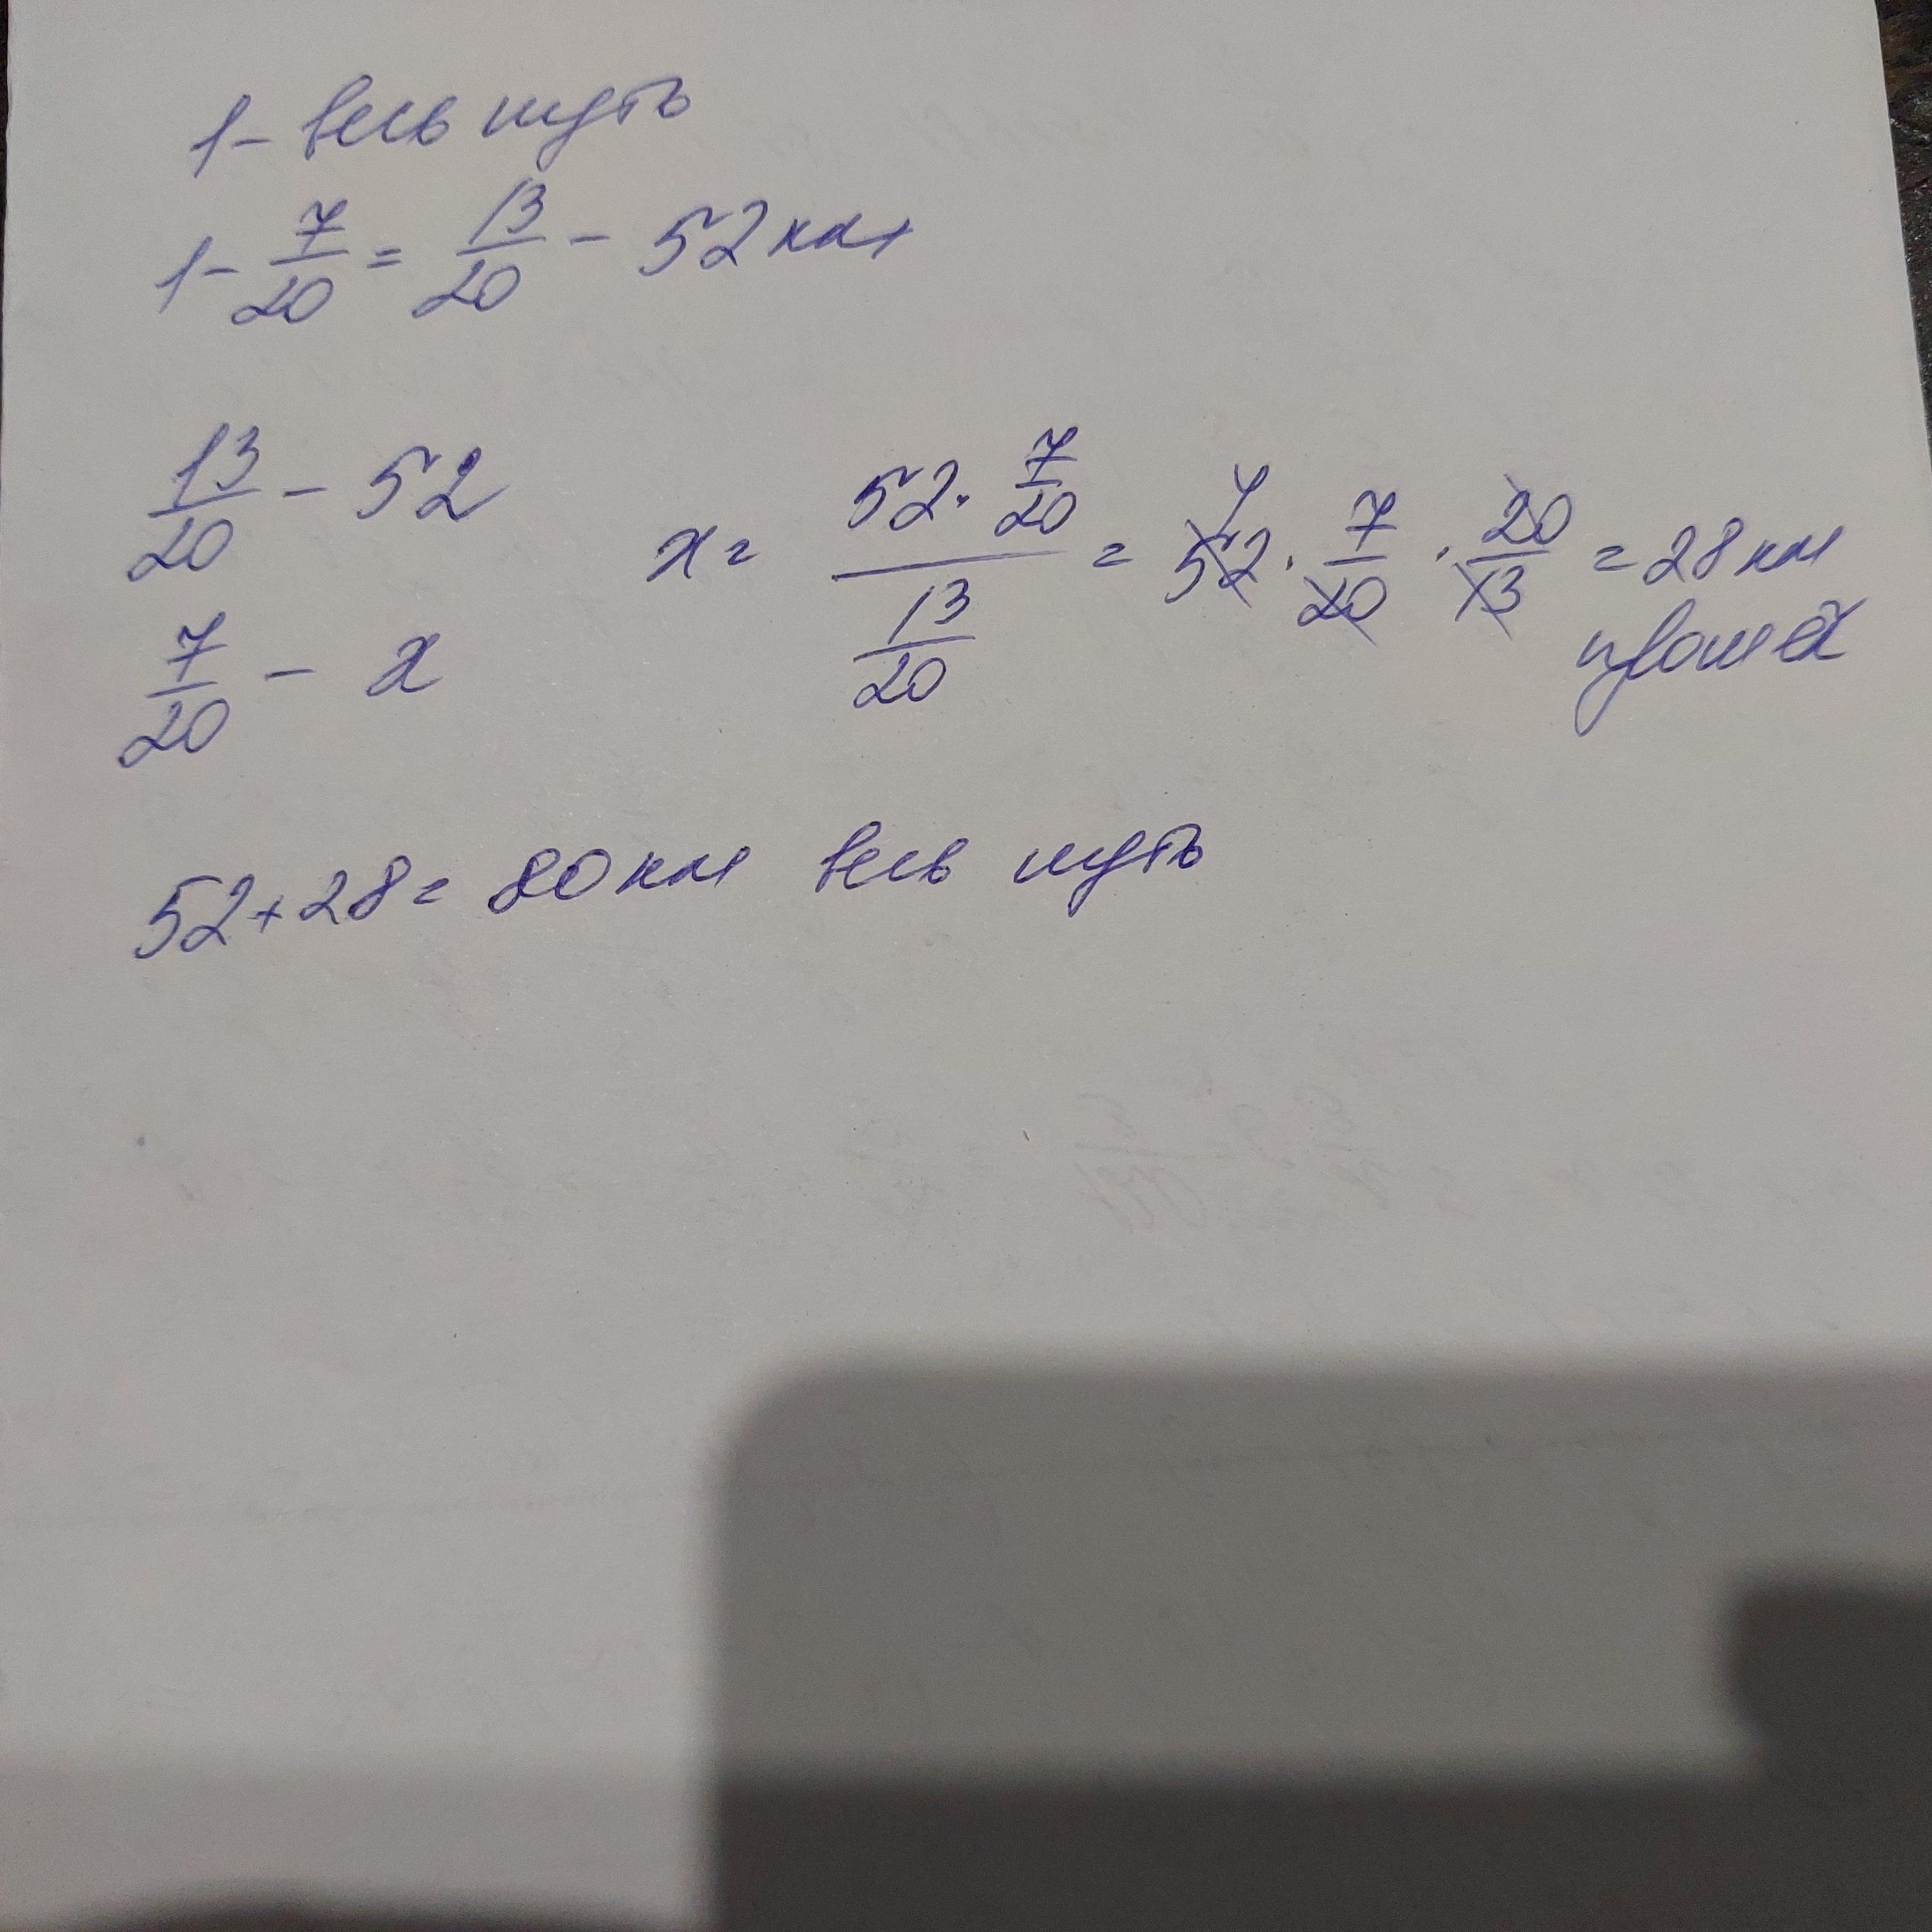 1 - весь путь
1 - 7/20 = 13/20 - 52 км
13/20 - 52
7/20 - x
x = (52 · 7/20) / (13/20) = 52 4 · 7/20 · 20/13 = 28 км
прошёл
52 + 28 = 80 км весь путь